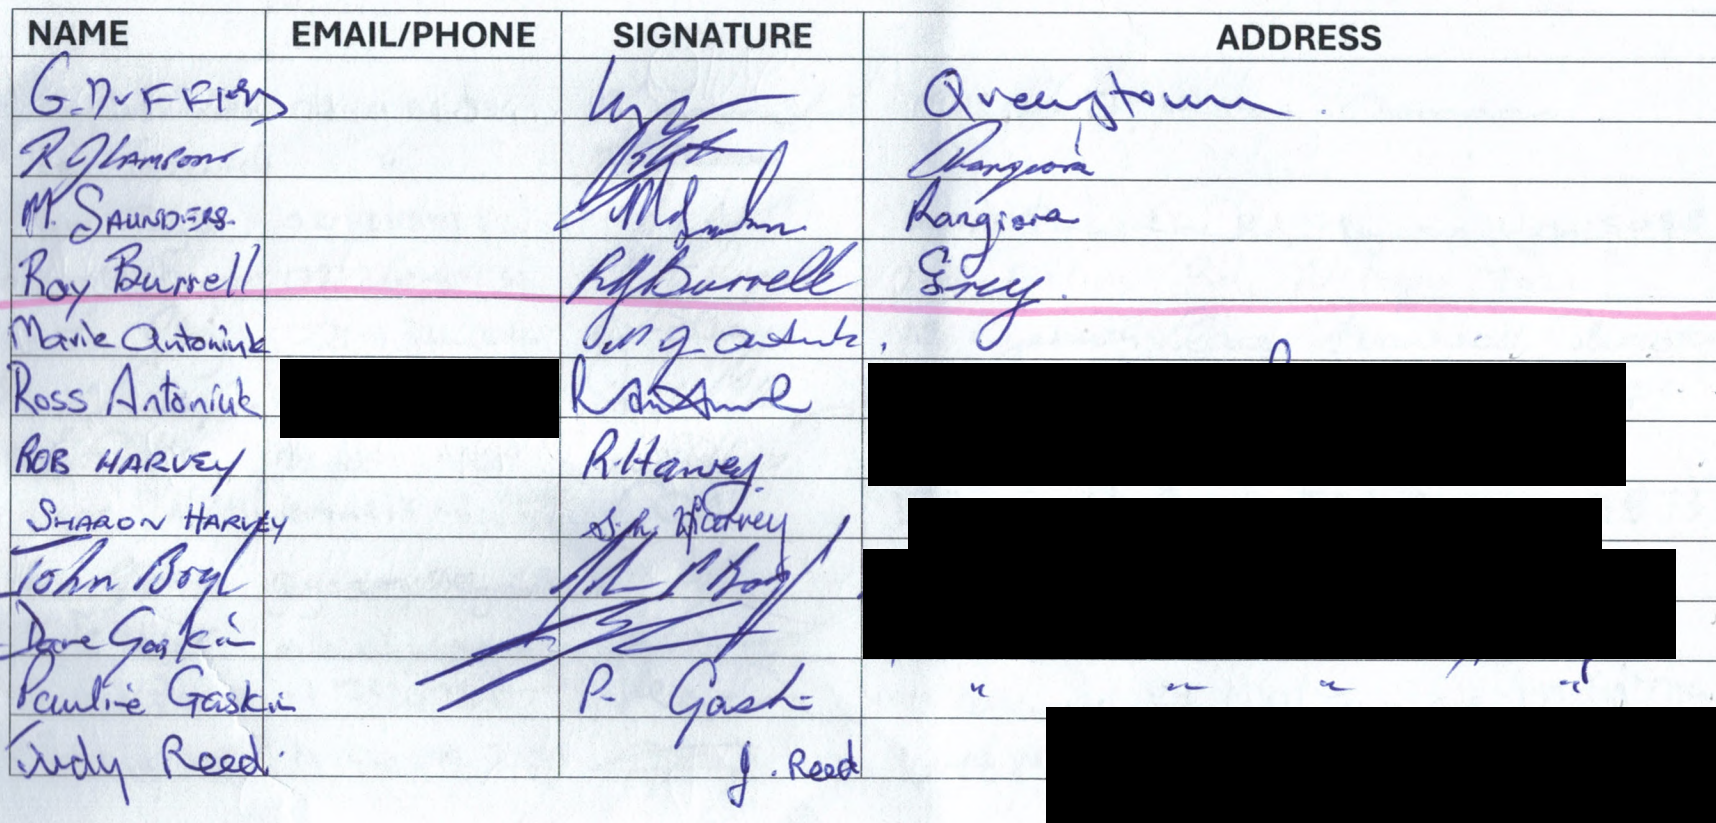 NAME EMAIL/PHONE SIGNATURE ADDRESS
G. DUFFIELD Queenstown.
R J LAMPORT Rangiora
M. SAUNDERS Rangiora
Roy Burrell RJ Burrell Grey.
Marie Antoniuk
Ross Antoniuk
ROB HARVEY R. Harvey
SHARON HARVEY Harvey
John Boyl
Dave Gaskin
Pauline Gaskin P. Gask " " " "
Judy Reed. J. Reed